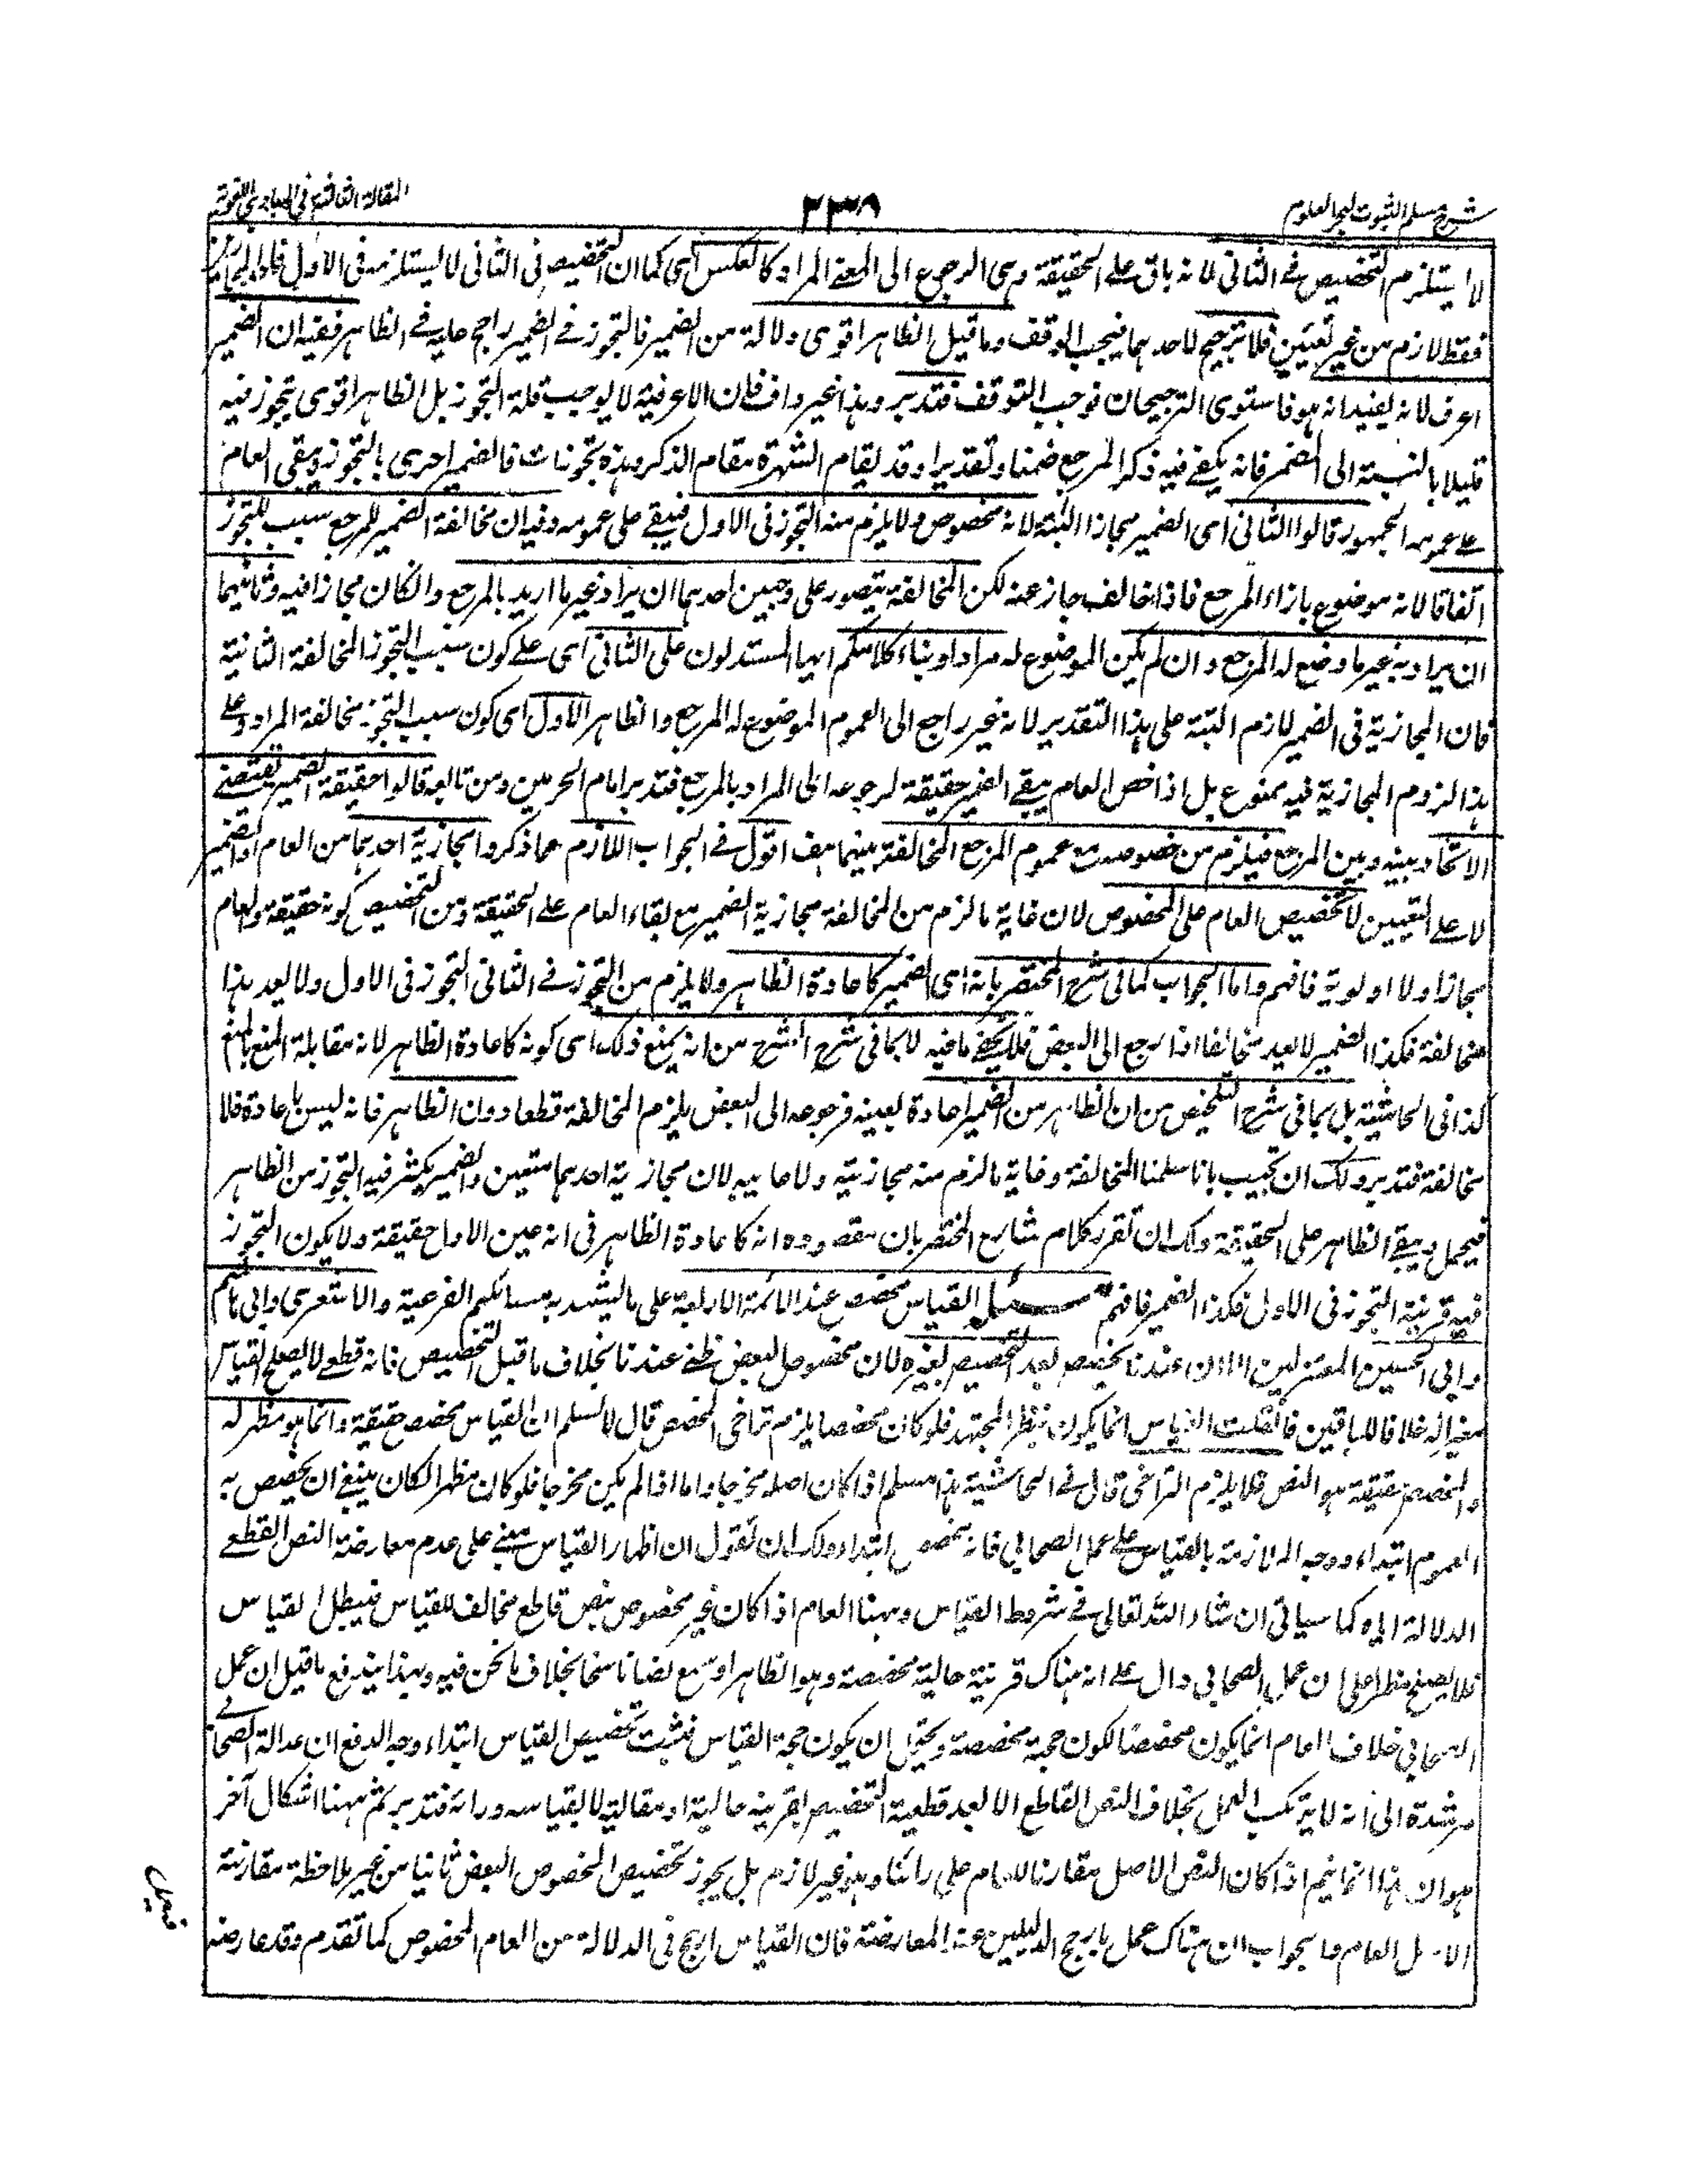 شرح مسلم الثبوت لبحر العلوم
٢٣٨
المقالة الثانية في المبادي اللغوية
لا يستلزم التخصيص في الثاني لانه باق على الحقيقة وهي الرجوع الى المعنى المراد كالعكس اي كما ان التخصيص في الثاني لا يستلزمه في الاول فاذا المجاز
فقط لازم من غير تعيين فلا ترجيح لاحدهما فيجب الوقف وما قيل الظاهر اقوى دلالة من الضمير فالتجوز في الضمير راجح عليه في الظاهر ففيه ان الضمير
اعرف لانه يفيد انه هو فاستوى الترجيحان فوجب التوقف فتدبر وهذا غير واف فان الاعرفية لا يوجب قلة التجوز بل الظاهر اقوى يتجوز فيه
قليلا بالنسبة الى المضمر فانه يكفي فيه ذكر المرجع ضمنا وتقديرا وقد يقام الشهرة مقام الذكر وهذه تجوزات فالضمير احرى بالتجوز ويبقى العام
على عمومه الجمهور قالوا الثاني اي الضمير مجاز البتة لانه مخصوص ولا يلزم منه التجوز في الاول فيبقى على عمومه وفيه ان مخالفة الضمير للمرجع سبب للتجوز
اتفاقا لانه موضوع بازاء المرجع فاذا خالف جاز عنه لكن المخالفة يتصور على وجهين احدهما ان يراد غير ما اريد بالمرجع وان كان مجازا فيه وثانيهما
ان يراد به غير ما وضع له المرجع وان لم يكن الموضوع له مرادا وبناء كلامكم ايها المستدلون على الثاني اي على كون سبب التجوز المخالفة الثانية
فان المجازية في الضمير لازم البتة على هذا التقدير لانه غير راجع الى العموم الموضوع له المرجع والظاهر الاول اي كون سبب التجوز مخالفة المراد وعلى
هذا لزوم المجازية فيه ممنوع بل اذا خص العام يبقى الضمير حقيقة لرجوعه الى المراد بالمرجع فتدبر امام الحرمين ومن تابعه قالوا حقيقة الضمير تقتضي
الاتحاد بينه وبين المرجع فيلزم من خصوصه مع عموم المرجع المخالفة بينهما هف اقول في الجواب اللازم مما ذكروا مجازية احدهما من العام او الضمير
لا على التعيين لا تخصيص العام على الخصوص لان غاية ما لزم من المخالفة مجازية الضمير مع بقاء العام على الحقيقة ومن التخصيص كونه حقيقة والعام
مجازا ولا اولوية فافهم واما الجواب كما في شرح المختصر بانه اي الضمير كاعادة الظاهر ولا يلزم من التجوز في الثاني التجوز في الاول ولا يعد هذا
مخالفة فكذا الضمير لا يعد مخالفا اذا رجع الى البعض فلا يخفى ما فيه لا بما في شرح الشرح من انه يمنع ذلك اي كونه كاعادة الظاهر لانه مقابلة المنع بالمنع
كذا في الحاشية بل بما في شرح التلخيص من ان الظاهر من الضمير اعادة بعينه فرجوعه الى البعض يلزم المخالفة قطعا دون الظاهر فانه ليس باعادة فلا
مخالفة فتدبر ولك ان تجيب بانا سلمنا المخالفة وغاية ما لزم منه مجازيته ولا ها بيه لان مجازية احدهما متعين والضمير يكثر فيه التجوز من الظاهر
فيحمل ويبقى الظاهر على الحقيقة ولك ان تقرر كلام شارح المختصر بان مقصوده انه كاعادة الظاهر في انه عين الاول حقيقة ولا يكون التجوز
فيه قرينة التجوز في الاول فكذا الضمير فافهم مسئلة القياس مخصص عند الائمة الاربعة على ما يشهد به مسائلهم الفرعية والاشعري وابي هاشم
وابي الحسين المعتزلين الا ان عندنا يخصص بعد التخصيص بغيره لان مخصوص البعض ظني عندنا بخلاف ما قبل التخصيص فانه قطعي لا يصلح القياس
مغيرا له خلافا للباقين فان قلت القياس انما يكون بنظر المجتهد فلو كان مخصصا يلزم تراخي المخصص قال لا نسلم ان القياس مخصص حقيقة وانما هو مظهر له
والمخصص حقيقة هو النص فلا يلزم التراخي قال في الحاشية هذا مسلم اذا كان اصله مخرجا واما اذا لم يكن مخرجا فلو كان مظهرا لكان ينبغي ان يخصص به
العموم ابتداء ووجه الملازمة بالقياس على عمل الصحابي فانه يخصص ابتداء ولك ان تقول ان اظهار القياس مبني على عدم معارضة النص القطعي
الدلالة اياه كما سياتي ان شاء الله تعالى في شروط القياس وههنا العام اذا كان غير مخصوص نص قاطع مخالف للقياس فيبطل القياس
فلا يصلح مظهرا على ان عمل الصحابي دال على انه هناك قرينة حالية مخصصة وهو الظاهر او سمع نصا ناسخا بخلاف ما نحن فيه وبهذا يندفع ما قيل ان عمل
الصحابي خلاف العام انما يكون مخصصا لكون حجة مخصصة ويحتمل ان يكون حجة القياس فثبت تخصيص القياس ابتداء وجه الدفع ان عدالة الصحابي
مرشدة الى انه لا يرتكب العمل بخلاف النص القاطع الا بعد قطعية التخصيص بقرينة حالية او مقالية لا بقياسه ورائه فتدبر ثم ههنا اشكال آخر
هو ان هذا انما يتم اذا كان النص الاصل مقارنا للعام على رائنا وهو غير لازم بل يجوز تخصيص المخصوص البعض ثانيا من غير ملاحظة مقارنة
الاصل العام والجواب ان هناك عمل بارجح الدليلين عند المعارضة فان القياس ارجح في الدلالة من العام المخصوص كما تقدم وقد عارضه